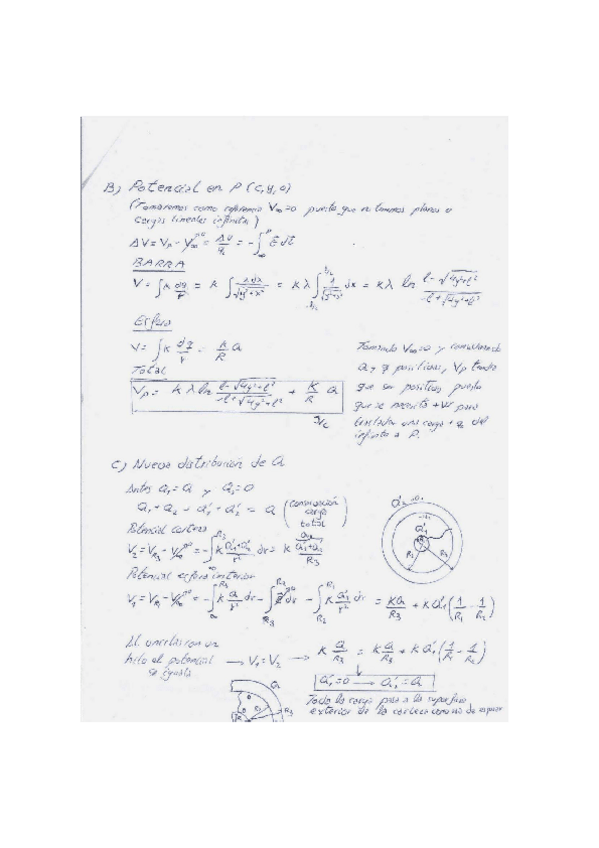 B) Potencial en P (0,y,0)
(Tomaremos como referencia V∞=0 puesto que no tenemos planos o
cargas lineales infinitas)
ΔV = Vp - V∞ = ΔU/q = -∫ E dl
BARRA
V = ∫ K dq/r = K ∫ λdx/√ = Kλ ∫ dx = Kλ ln (l-√4y²+l²)/(-l+√4y²+l²)
Esfera
V = ∫ K dq/r = K/R Q
Total
Vp = Kλ ln (l-√4y²+l²)/(-l+√4y²+l²) + K/R Q
Tomando V∞=0 y considerando
Q y q positivas, Vp tendrá
que ser positivo puesto
que se necesita +W para
trasladar una carga +q del
infinito a P.
C) Nueva distribución de Q
Antes Q1=Q y Q2=0
Q1+Q2 = Q1'+Q2' = Q (conservación carga total)
Potencial corteza
V2 = VR3 - V∞ = -∫ K (Q1'+Q2')/r² dr = K (Q1'+Q2')/R3
Potencial esfera interior
V1 = VR1 - V∞ = -∫ K Q/r² dr - ∫ dr - ∫ K Q1'/r² dr = KQ/R3 + KQ1'(1/R1 - 1/R2)
Al unirlas con un
hilo el potencial
se iguala
→ V1=V2 → K Q/R3 = K Q/R3 + K Q1'(1/R1 - 1/R2)
Q1'=0 → Q2'=Q
Toda la carga pasa a la superficie
exterior de la corteza como era de esperar